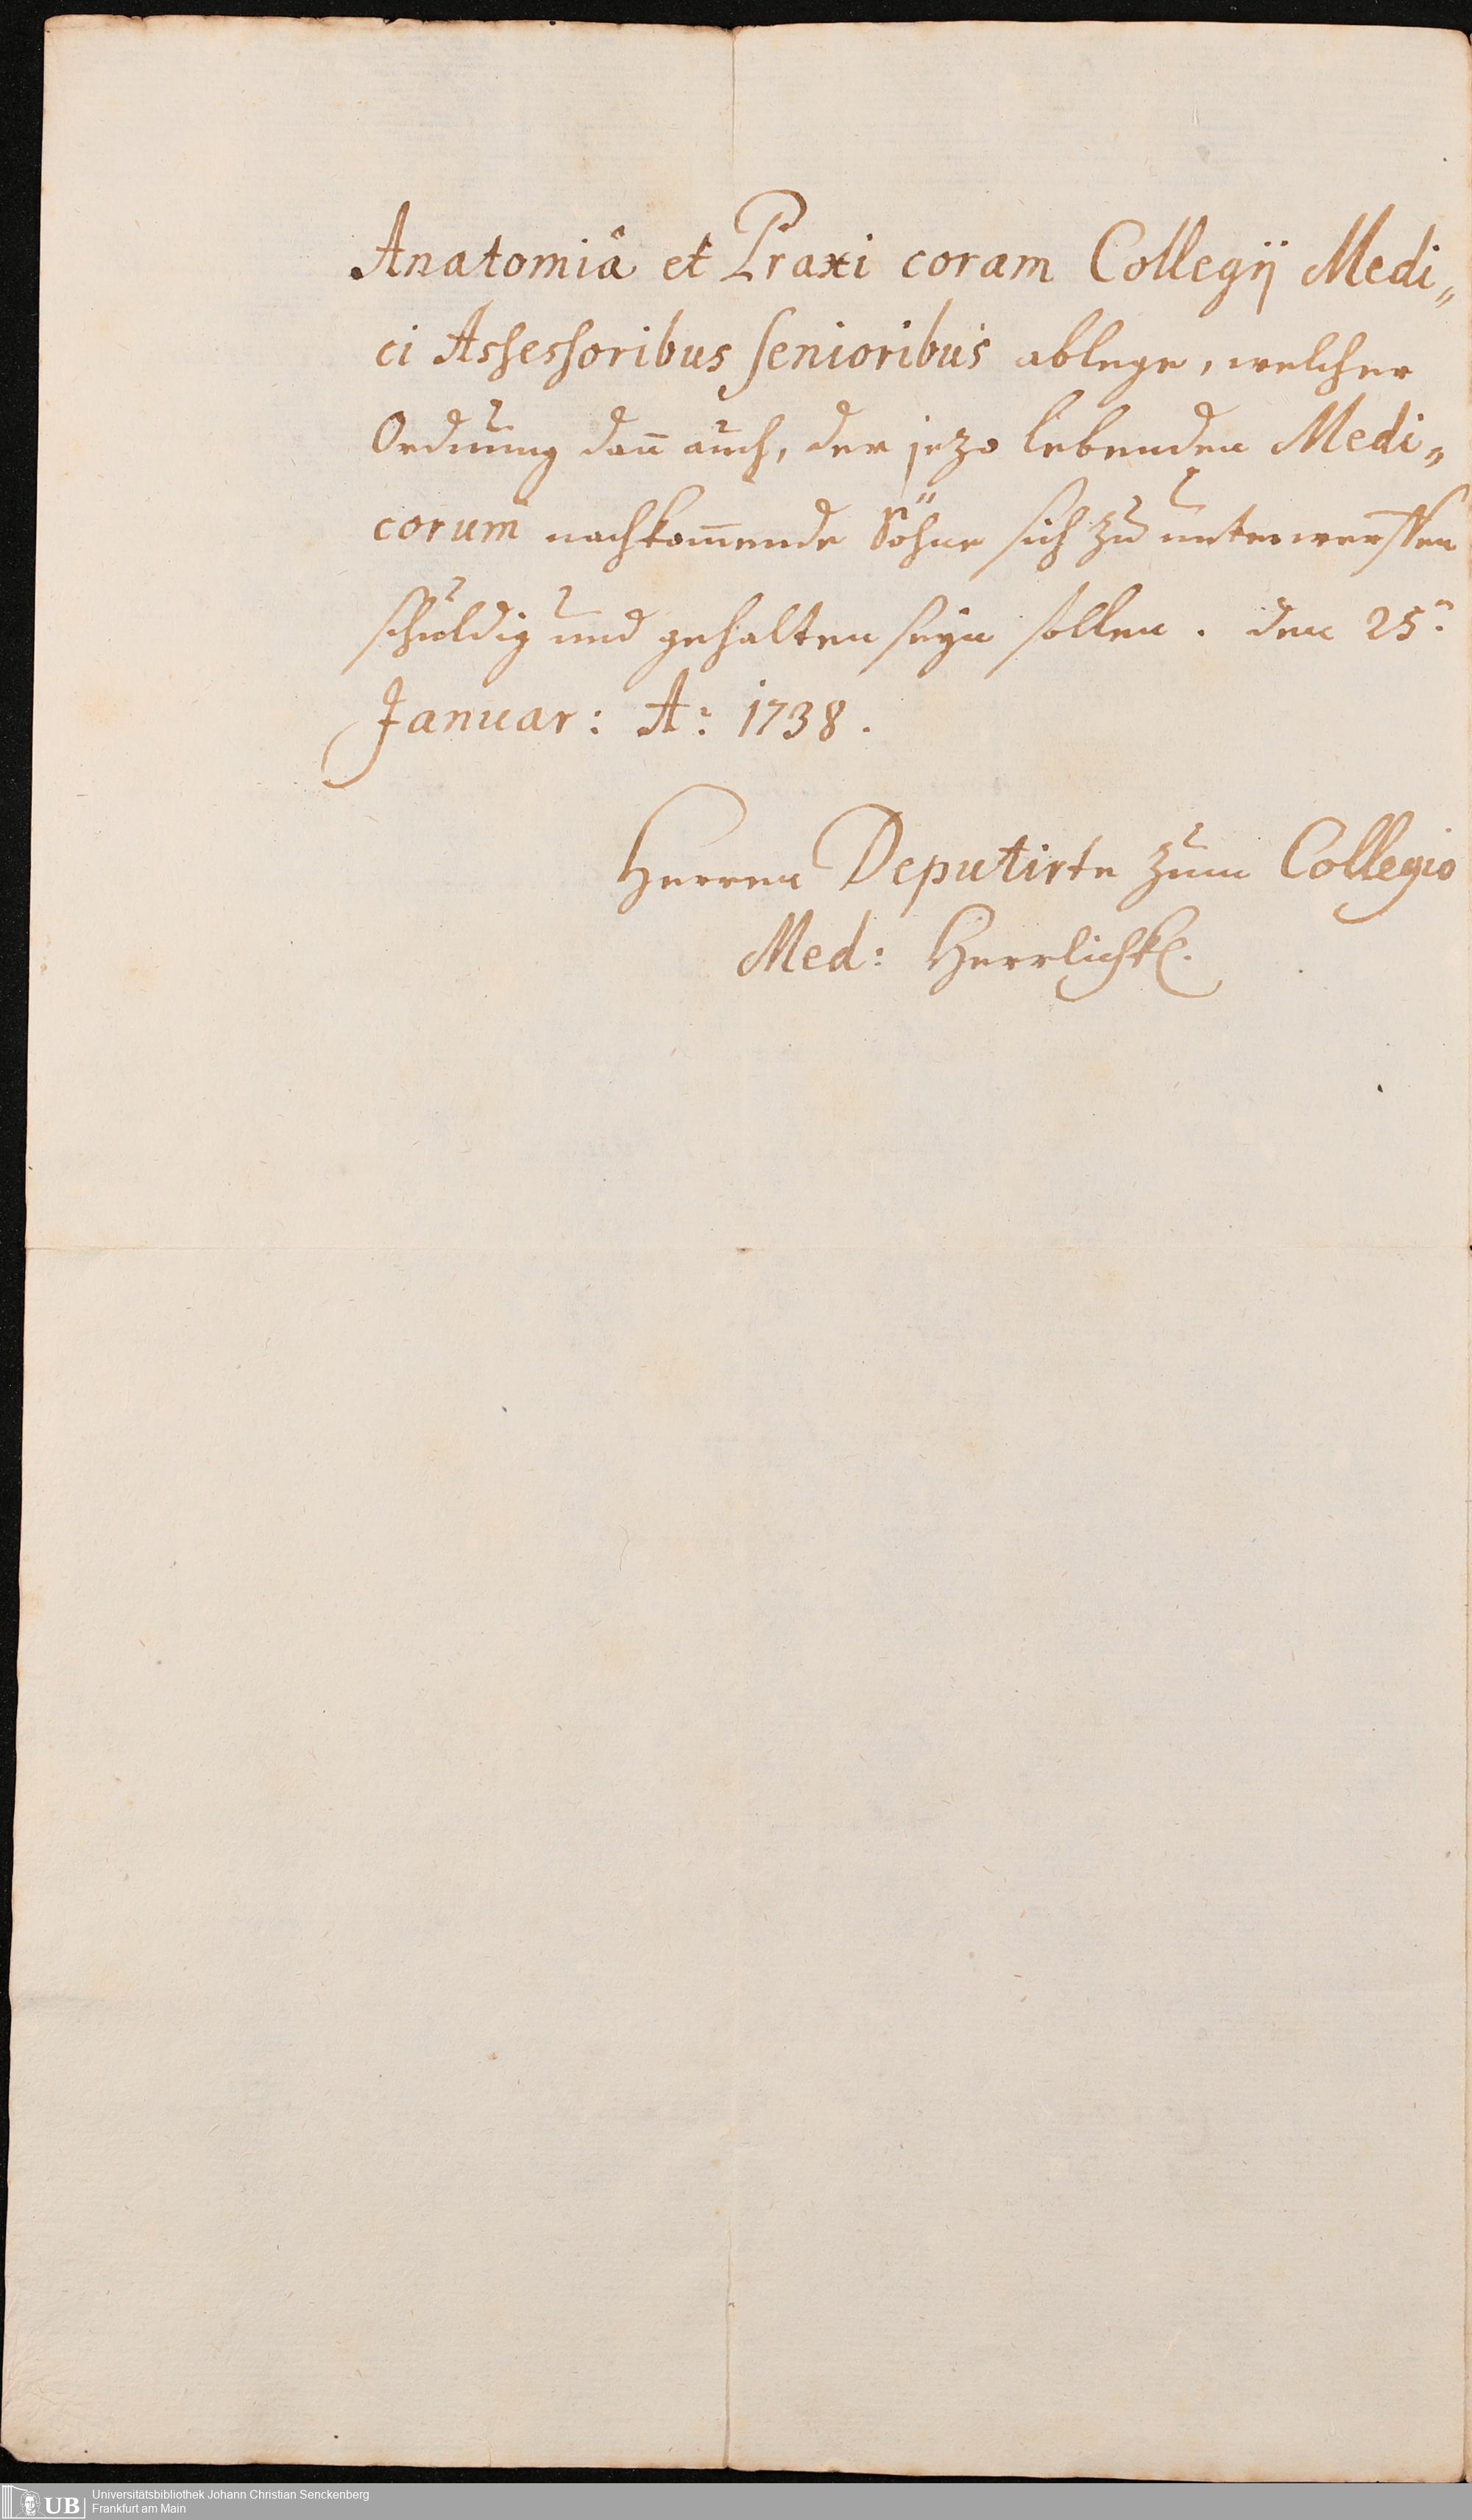 Anatomiâ et Praxi coram Collegij Medi„
ci Assessoribus Senioribus ablege, welcher
Ordnung dan̄ auch, der jezo lebenden Medi„
corum nachkom̄ende Söhne sich zu unterwerffen
schuldig und gehalten seyn sollen. den 25.n
Januar: A.: 1738.
Herren Deputirte zum Collegio
Med: Herrlichk.
UB
Universitätsbibliothek Johann Christian Senckenberg
Frankfurt am Main